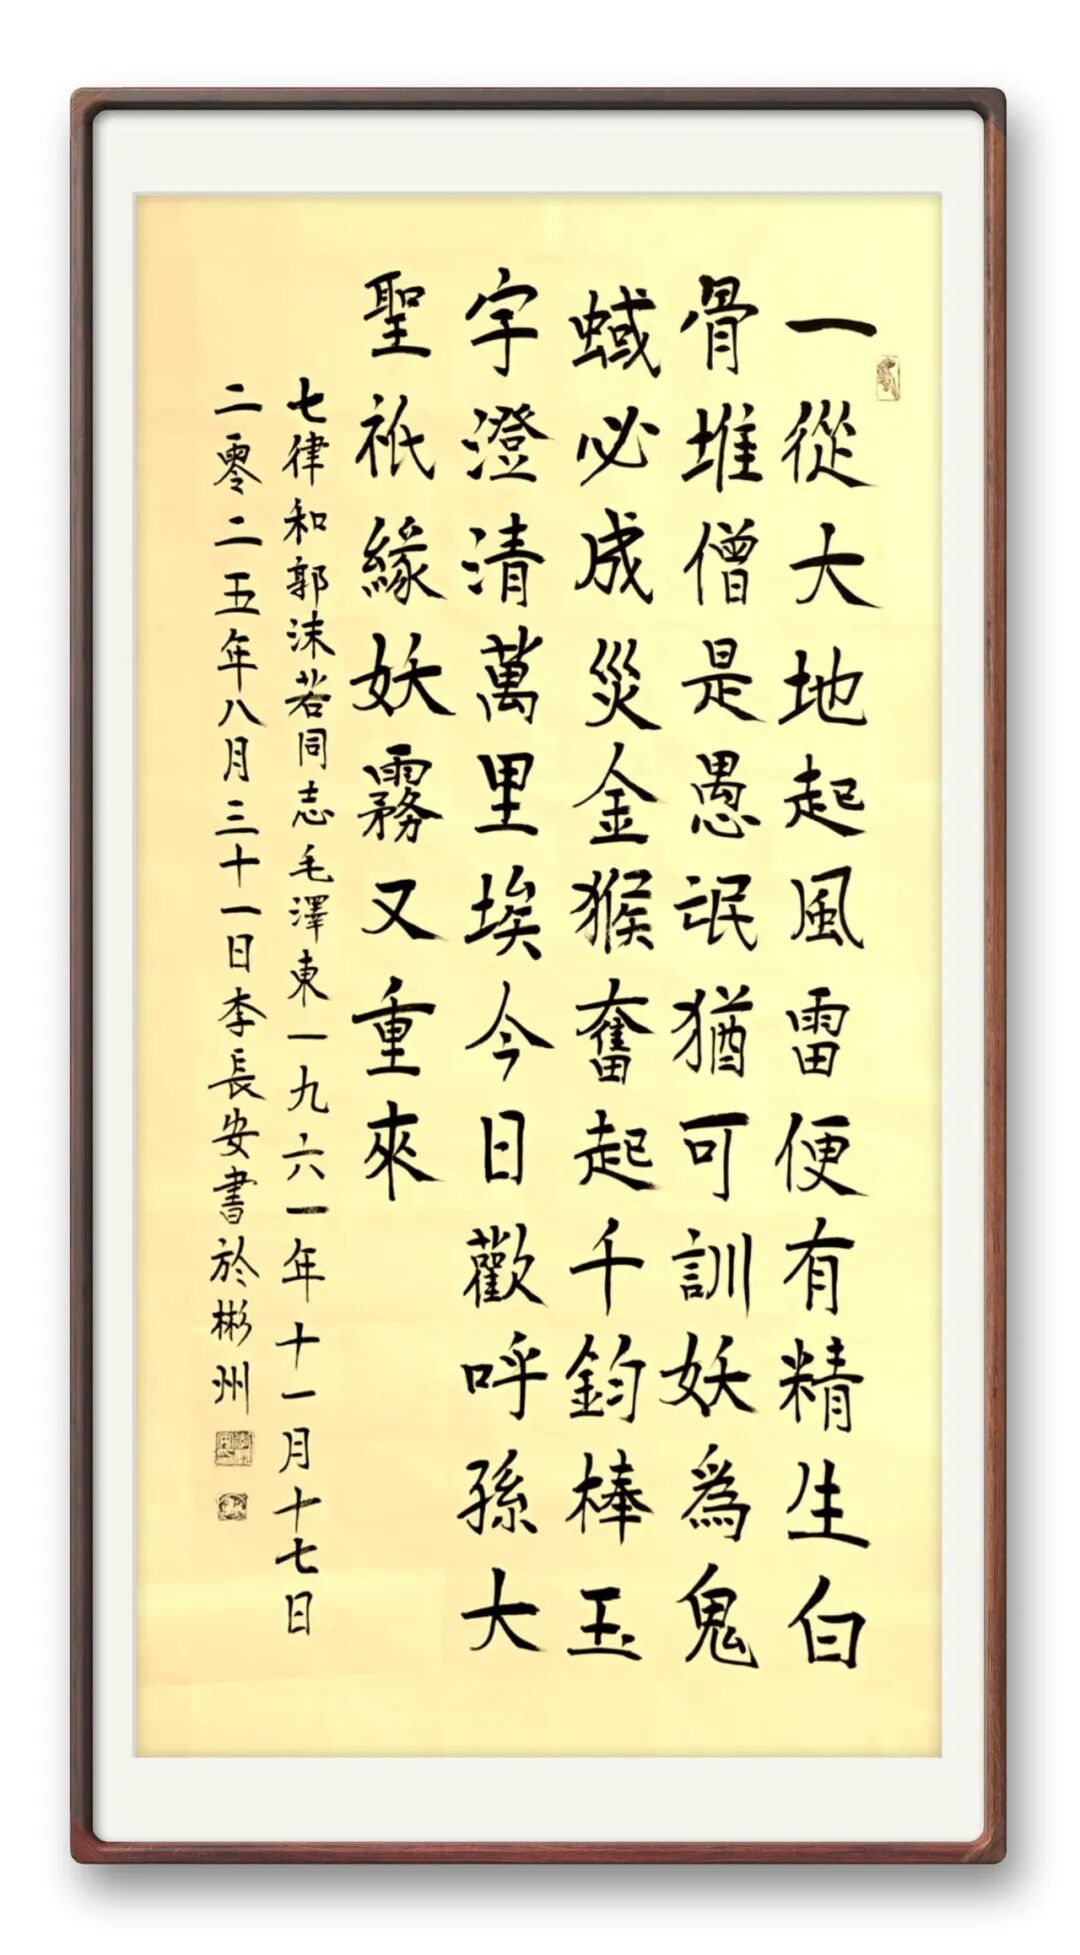 一從大地起風雷便有精生白
骨堆僧是愚氓猶可訓妖爲鬼
蜮必成災金猴奮起千鈞棒玉
宇澄清萬里埃今日歡呼孫大
聖祇緣妖霧又重來
七律和郭沫若同志毛澤東一九六一年十一月十七日
二零二五年八月三十一日李長安書於彬州